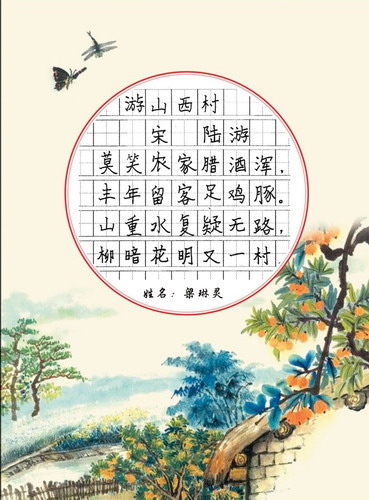 游山西村
宋 陆游
莫笑农家腊酒浑，
丰年留客足鸡豚。
山重水复疑无路，
柳暗花明又一村
姓名：梁琳灵